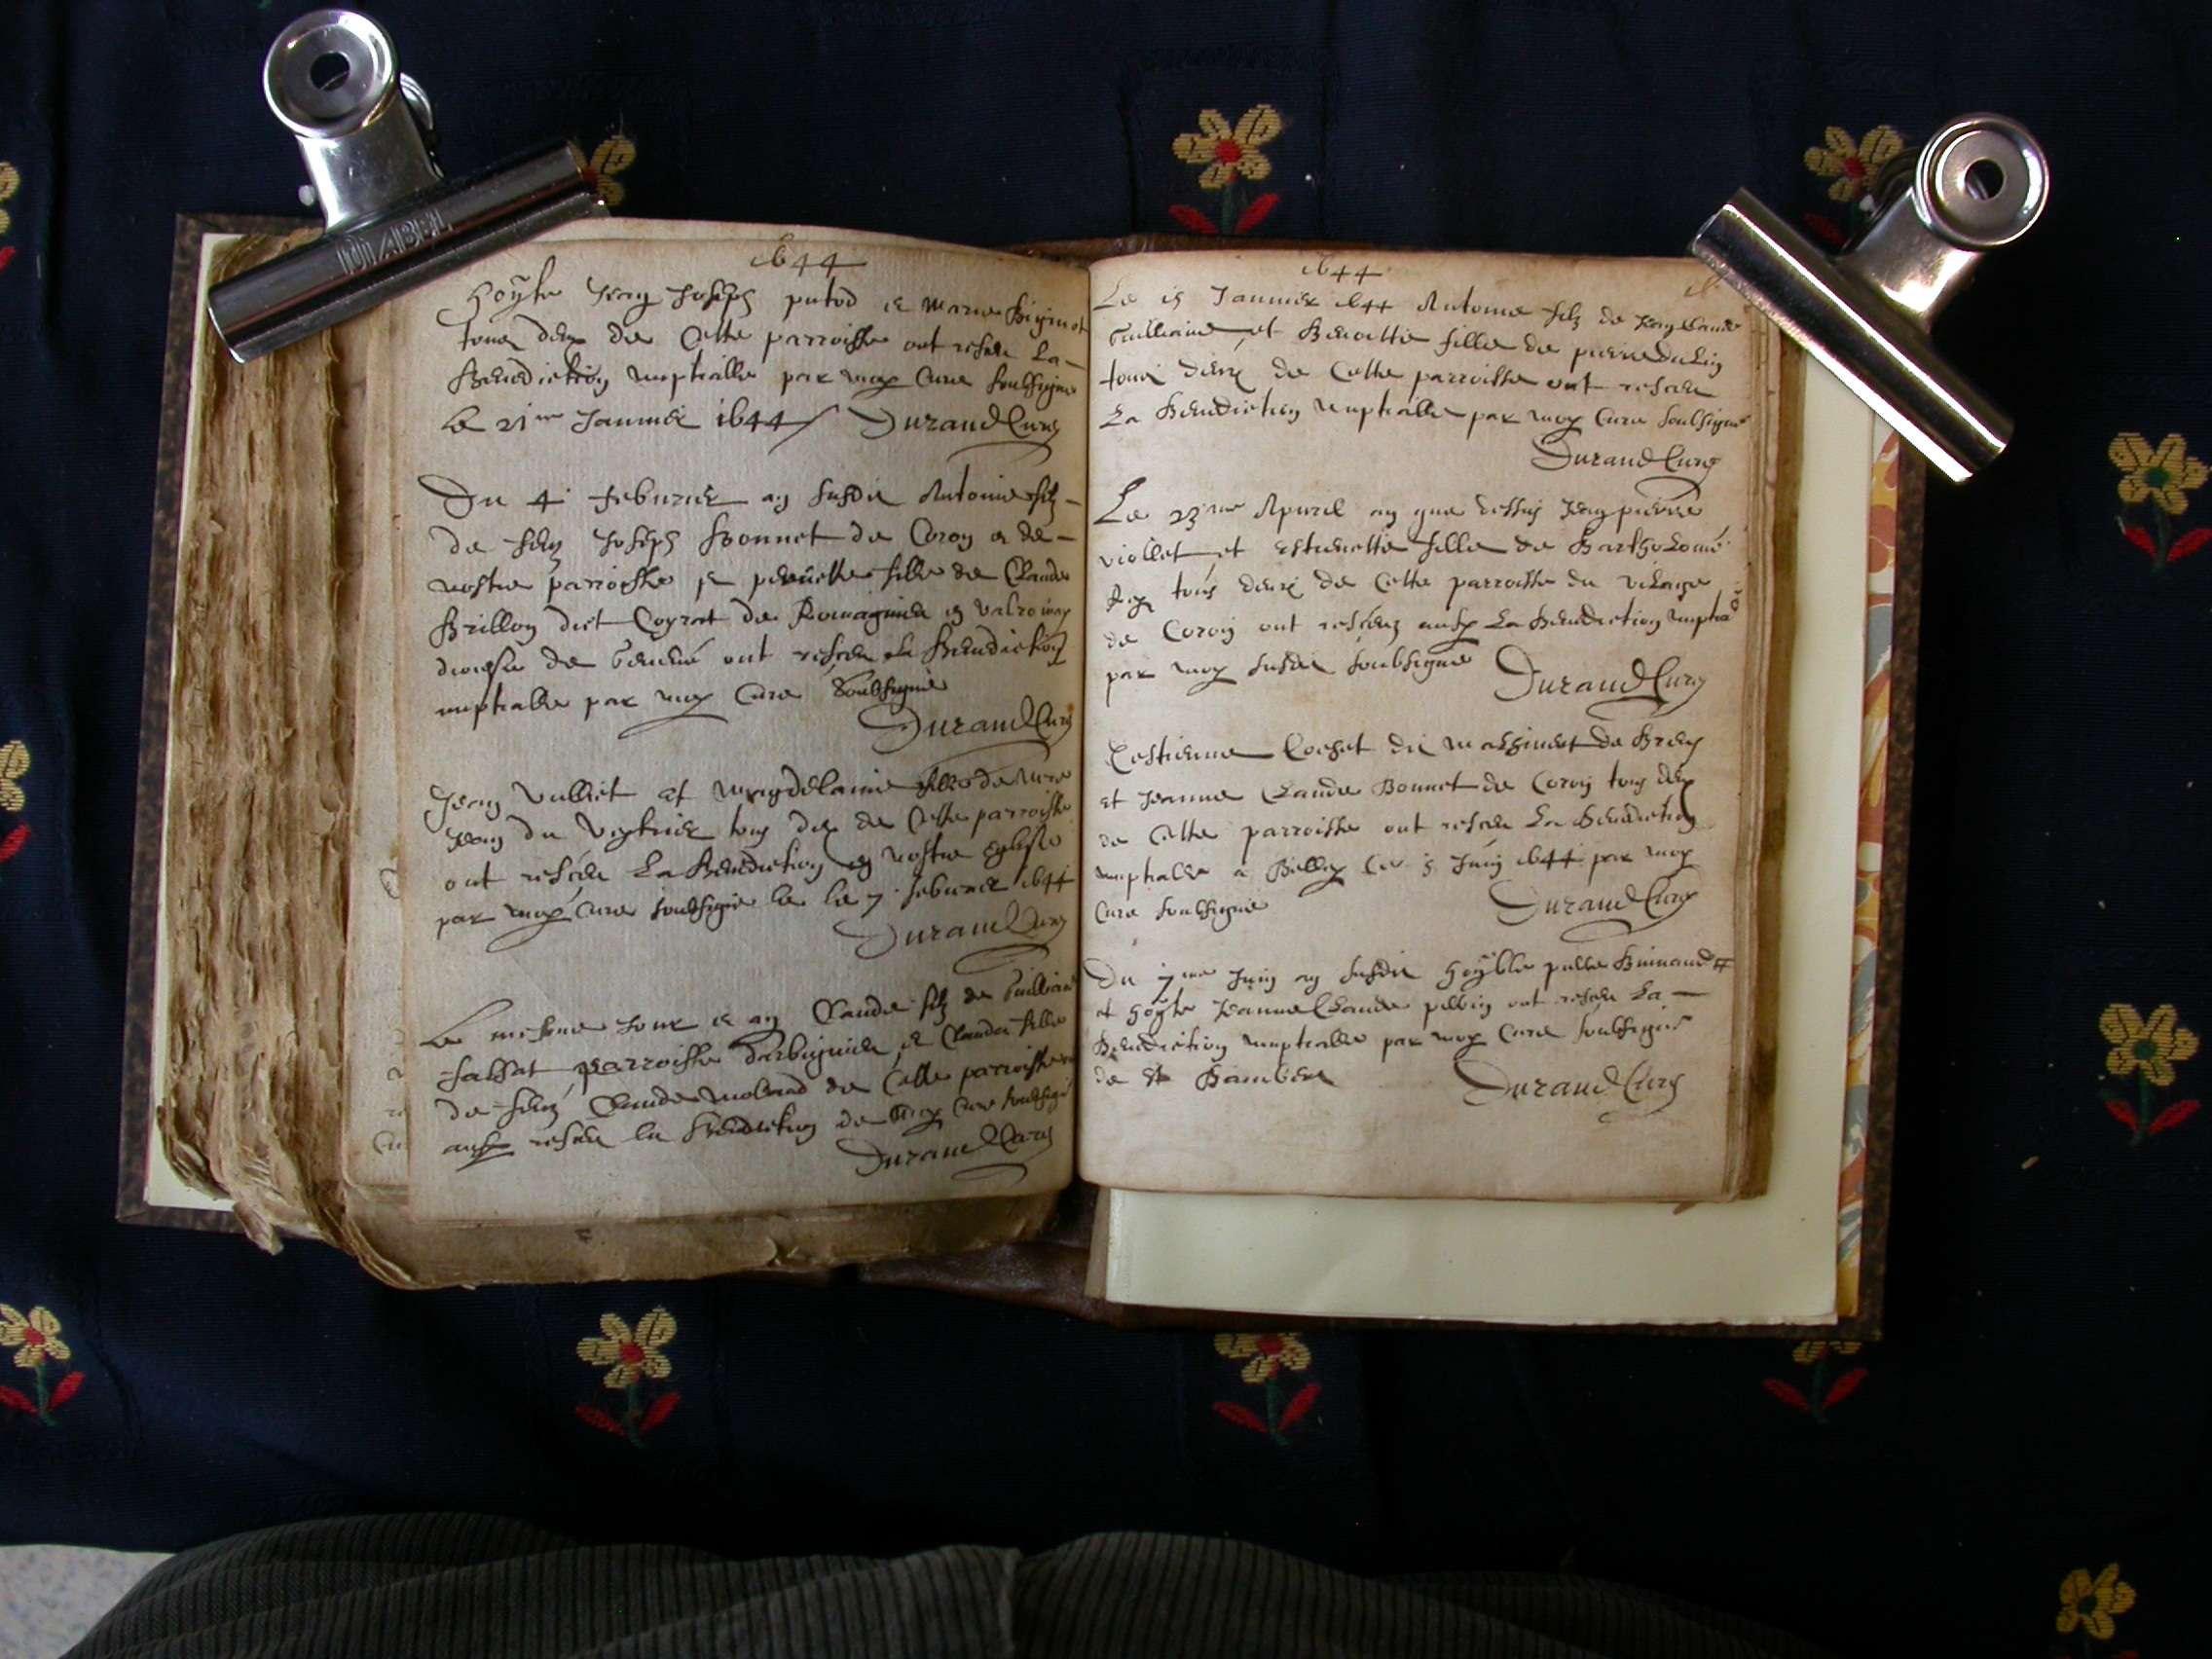 DIABEL
1644
honeste Jean Joseph putod et Marie
tous deux de Cette parroisse ont receu La
Benediction nuptialle par moy Curé soubsigné
Le 21me Januier 1644 Durand Curé
Du 4 feburier an susdit Antoine filz
de feu Joseph Bonnet de Coron et de
nostre parroisse et pernette fille de Claude
Brillon dict Coyrat de Romagnieu en valromey
diocese de Geneue ont receu la Benediction
nuptialle par moy Curé Soubsigné
Durand Curé
Jean Vulliet et Magdelaine fille de
Jean du tous deux de Cette parroisse
ont receu La Benediction en nostre Eglise
par moy Curé soubsigné le le 7 feburier 1644
Durand Curé
Le mesme Jour et an Claude filz de
parroisse et Clauda fille
de feu Claude de Cette parroisse
aussy receu la Benediction de Moy Curé soubsigné
Durand Curé
1644
Le 15 Januier 1644 Antoine filz de Jean Claude
Guilliaime et Benoitte fille de pierre
tous deux de Cette parroisse ont receu
La Benediction Nuptialle par moy Curé soubsigné
Durand Curé
Le 23me Apuril an que dessus Jean pierre
viollet et Estienette fille de Bartholomé
Rey tous deux de Cette parroisse du vilage
de Coron ont receuz aussy La Benediction nuptia
par moy susdit soubsigné Durand Curé
Estienne Cochet dit de Bren
et Jeanne Claude Bonnet de Coron tous deux
de Cette parroisse ont receu La Benediction
nuptialle a Belley Ce 5 Juin 1644 par moy
Curé soubsigné Durand Curé
Du 7me Juin an susdit
et honeste Jeanne Claude ont receu La
Benediction nuptialle par moy Curé soubsigné
de St Durand Curé